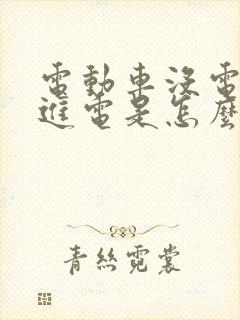 電動車沒電
進電是怎麼
青絲霓裳